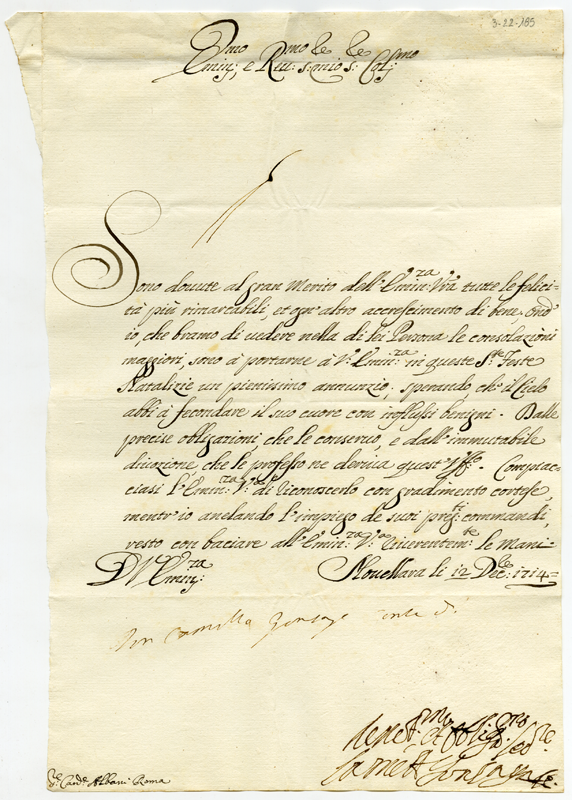 3-22-185
Emin:mo e Rev:mo s: mio s: Col:mo
Sono dovute al gran Merito dell' Emin:za Vra tutte le felici-
tà più rimarcabili, et ogn' altro accrescimento di bene, Ond'
io, che bramo di vedere nella di lei Persona le consolazioni
maggiori, sono à portarne à V: Emin:za in queste Ste Feste
Natalizie un pienissimo annunzio, sperando, ch' il Cielo
abbi à fecondare il suo cuore con influssi benigni. Dalle
precise obligazioni, che le conservo, e dall' immutabile
divozione, che le professo ne deriva quest' uff:o. Compiac-
ciasi l' Emin:za V: di riconoscerlo con gradimento cortese,
mentr' io anelando l' impiego de suoi preg:ti commandi,
resto con baciare all' Emin:za Vra riverentem:te le Mani
D V Emin:za
Novellara li 12 Dec:bre 1714
Don Camillo Gonzaga Conte di
Devot:mo et Obligmo Servre
Camillo Gonzaga
Se Card:e Albani Roma